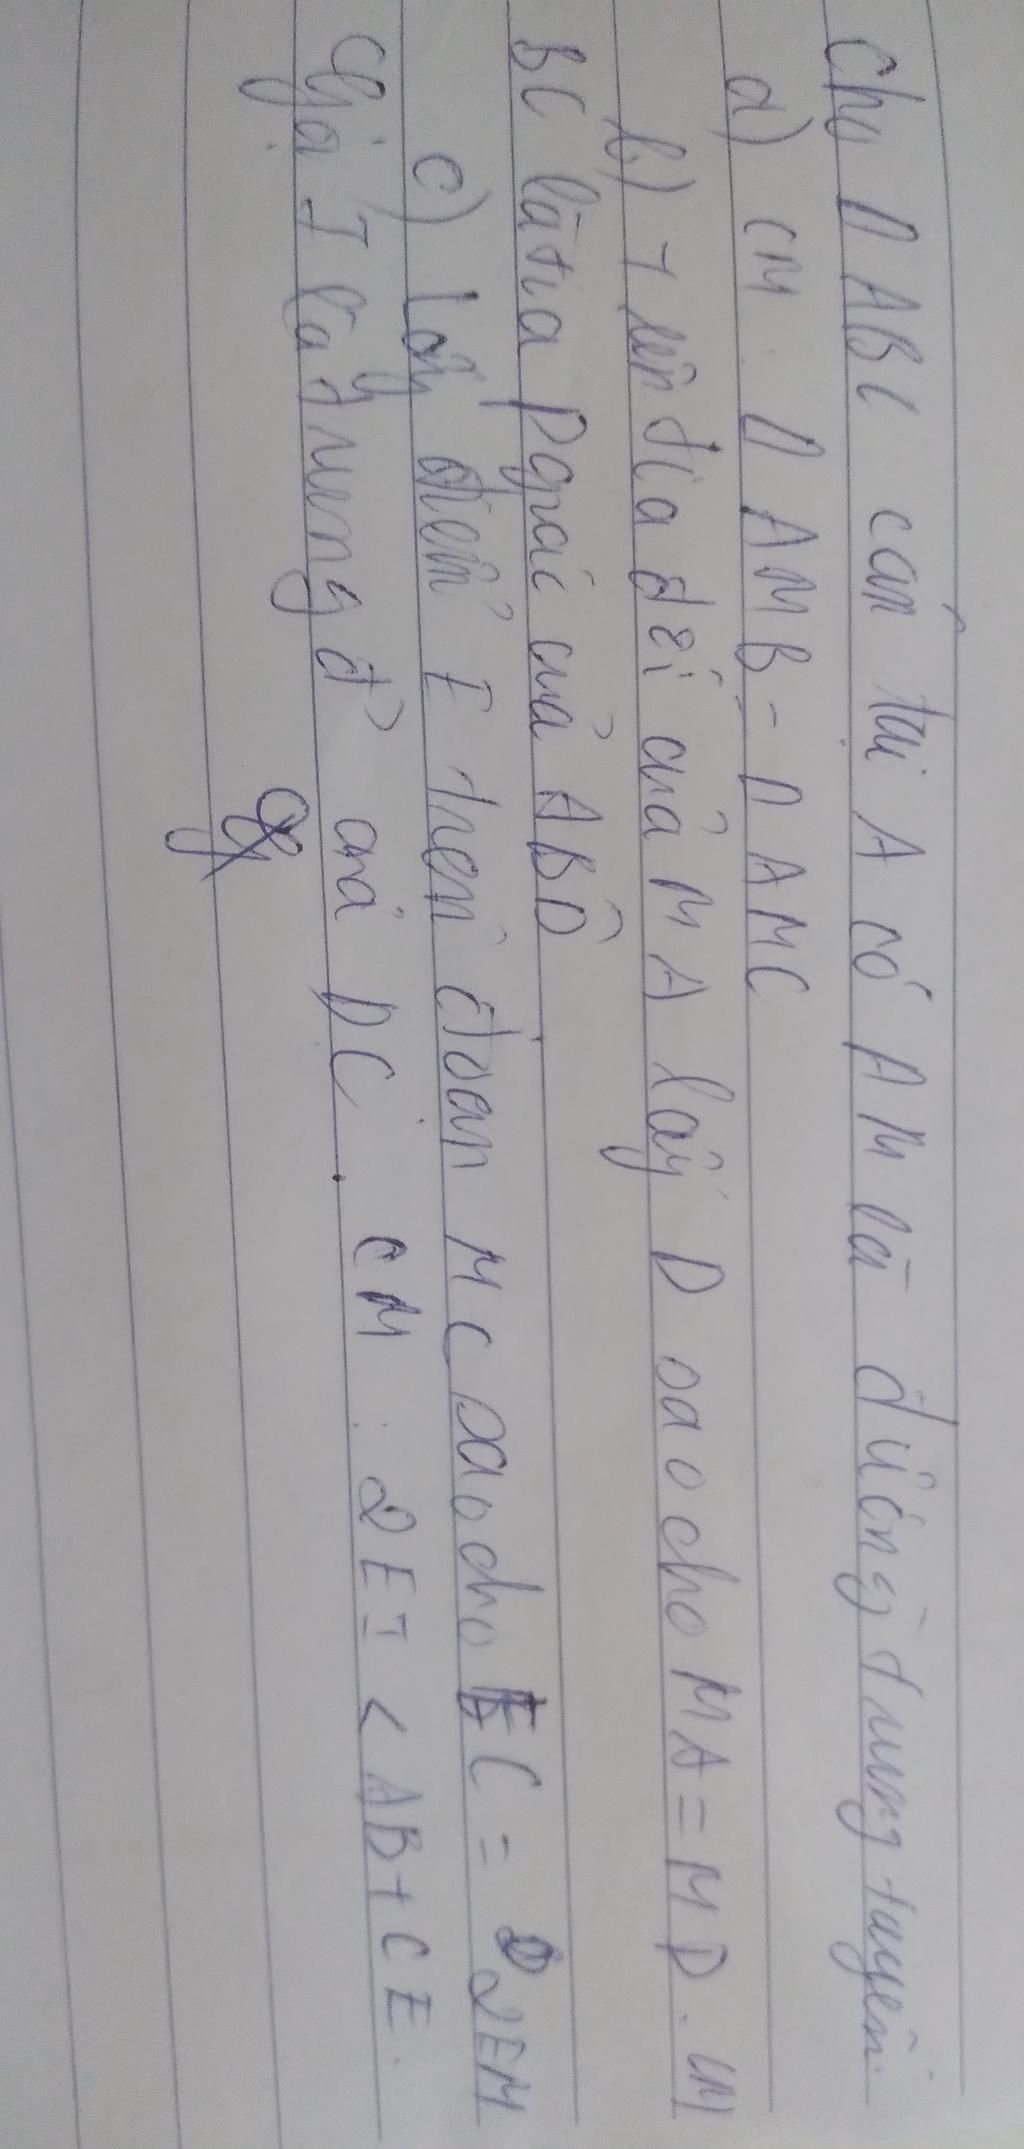 Cho Δ ABC cân tại A có AM là đường trung tuyến.
a) CM: Δ AMB = Δ AMC
b) Trên tia đối của MA lấy D sao cho MA = MD. CM
BC là tia pgiác của ABD
c) Lấy điểm E trên đoạn MC sao cho EC = 2EM
Gọi I là trung đ' của DC. CM: 2EI < AB + CE.